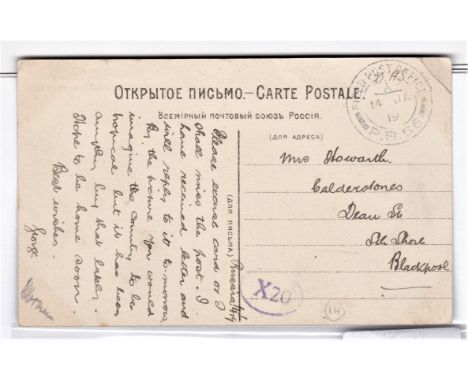 ОТКРЫТОЕ ПИСЬМО.—CARTE POSTALE.
ВСЕМІРНЫЙ ПОЧТОВЫЙ СОЮЗЪ РОССІЯ.
(ДЛЯ АДРЕСА)
(ДЛЯ ПИСЬМА)
FIELD POST OFFICE
A
14 JA
19
P.B.55
Please excuse card or I
shall miss the post. I
have received letter and
will reply to it to-morrow
By the picture you would
imagine the country to be
tropical but it has been
anything but that lately.
Hope to be home soon.
Best wishes.
George
Mrs Howarth.
Calderstones
Dean St
Sth Shore
Blackpool
X20
14